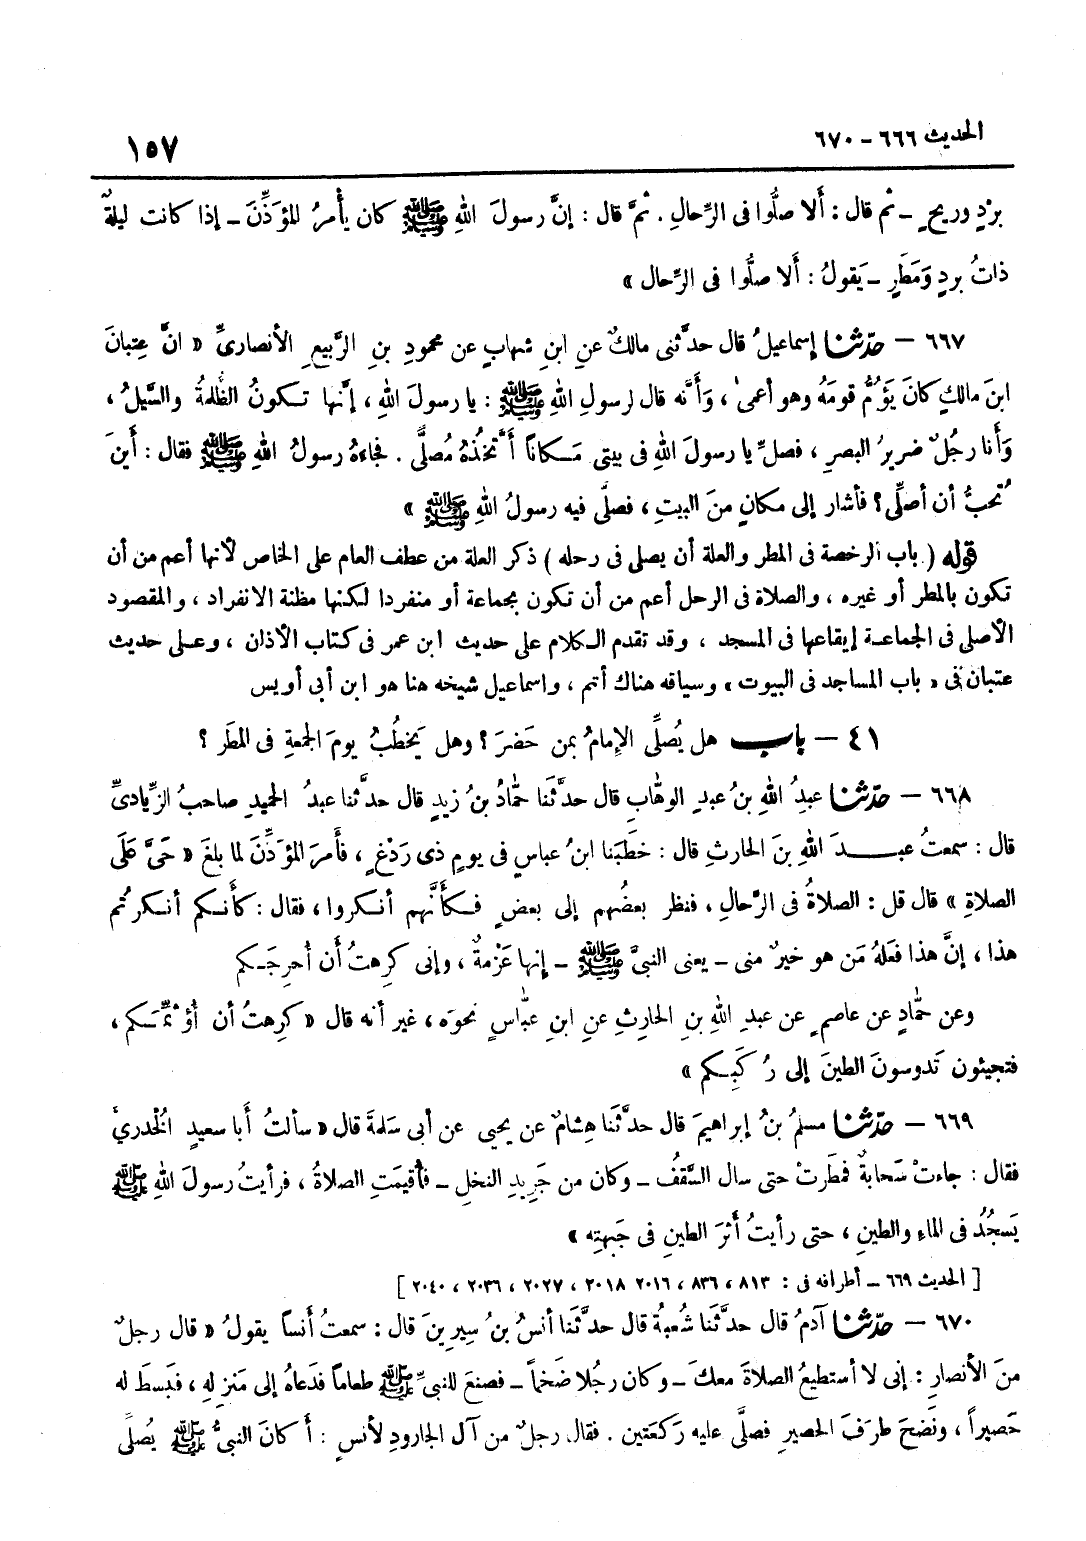 الحديث ٦٦٦ - ٦٧٠
١٥٧
بَرْدٍ وريحٍ - ثم قال : أَلا صلُّوا فى الرِّحالِ . ثمَّ قال : إنَّ رسولَ اللهِ ﷺ كان يأمُرُ المؤَذِّنَ - إذا كانت ليلةٌ
ذاتُ بردٍ وَمَطَرٍ - يَقولُ : أَلا صلُّوا فى الرِّحال »
٦٦٧ - حدّثنا إسماعيلُ قال حدَّثنى مالكٌ عنِ ابنِ شهابٍ عن محمودِ بنِ الرَّبيعِ الأنصارىِّ « انَّ عِتبانَ
ابنَ مالكٍ كانَ يَؤُمُّ قومَهُ وهو أعمىٰ ، وَأَنَّه قال لرسولِ اللهِ ﷺ : يا رسولَ اللهِ ، إنَّها تكونُ الظُّلمةُ والسَّيلُ ،
وَأنا رجُلٌ ضريرُ البصرِ ، فصلِّ يا رسولَ اللهِ فى بيتى مَكاناً أتَّخذُهُ مُصلًّى . فجاءهُ رسولُ اللهِ ﷺ فقال : أينَ
تُحبُّ أن أصلِّى ؟ فأشار إلى مكانٍ منَ البيتِ ، فصلَّى فيه رسولُ اللهِ ﷺ »
قوله ( باب الرخصة فى المطر والعلة أن يصلى فى رحله ) ذكر العلة من عطف العام على الخاص لأنها أعم من أن
تكون بالمطر أو غيره ، والصلاة فى الرحل أعم من أن تكون بجماعة أو منفردا لكنها مظنة الانفراد ، والمقصود
الأصلى فى الجماعة إيقاعها فى المسجد ، وقد تقدم الكلام على حديث ابن عمر فى كتاب الأذان ، وعلى حديث
عتبان فى « باب المساجد فى البيوت » وسياقه هناك أتم ، واسماعيل شيخه هنا هو ابن أبى أويس
٤١ - باب هل يُصلِّى الإمامُ بمن حَضرَ ؟ وهل يَخطُبُ يومَ الجمعةِ فى المطَر ؟
٦٦٨ - حدّثنا عبدُ اللهِ بنُ عبدِ الوهّابِ قال حدَّثَنا حمّادُ بنُ زيدٍ قال حدَّثنا عبدُ الحميدِ صاحبُ الزِّيادىِّ
قال : سمعتُ عبدَ اللهِ بنَ الحارثِ قال : خطَبَنا ابنُ عباسٍ فى يومٍ ذى رَدْغٍ ، فأمرَ المؤَذِّنَ لما بلغَ « حَىَّ عَلَى
الصلاةِ » قال قل : الصلاةُ فى الرِّحالِ ، فنظر بعضُهم إلى بعضٍ فكأنَّهم أنكروا ، فقال : كأنكم أنكرتُم
هذا ، إنَّ هذا فعَلهُ مَن هو خيرٌ منى - يعنى النبىَّ ﷺ - إنها عَزْمةٌ ، وإنى كرِهتُ أن أُحرِجَكم
وعن حمّادٍ عن عاصمٍ عن عبدِ اللهِ بنِ الحارِثِ عنِ ابنِ عبّاسٍ نحوَه ، غير أنه قال « كرِهتُ أن أؤَثِّمَكم ،
فتجيئون تَدوسونَ الطينَ إلى رُكَبِكم »
٦٦٩ - حدّثنا مسلمُ بنُ إبراهيمَ قال حدَّثَنا هِشامٌ عن يحيى عن أبى سَلمةَ قال « سألتُ أبا سعيدٍ الخُدرىَّ
فقال : جاءتْ سَحابةٌ فمطَرتْ حتى سال السَّقفُ - وكان من جَريدِ النخلِ - فأُقيمَتِ الصلاةُ ، فرأيتُ رسولَ اللهِ ﷺ
يَسجُدُ فى الماءِ والطينِ ، حتى رأيتُ أثرَ الطينِ فى جَبهتِه »
[ الحديث ٦٦٩ - أطرافه فى : ٨١٣ ، ٨٣٦ ، ٢٠١٦ ٢٠١٨ ، ٢٠٢٧ ، ٢٠٣٦ ، ٢٠٤٠ ]
٦٧٠ - حدّثنا آدمُ قال حدَّثَنا شُعبةُ قال حدَّثَنا أنسُ بنُ سِيرينَ قال : سمعتُ أنَساً يقولُ « قال رجلٌ
منَ الأنصارِ : إنى لا أستطيعُ الصلاةَ معكَ - وكان رجُلا ضَخماً - فصنعَ للنبىِّ ﷺ طعاماً فدَعاهُ إلى مَنزِلهِ ، فبَسطَ له
حَصيراً ، ونَضحَ طرَفَ الحصيرِ فصلَّى عليه رَكعَتين . فقال رجلٌ من آل الجارودِ لأنسٍ : أكانَ النبىُّ ﷺ يُصلِّى